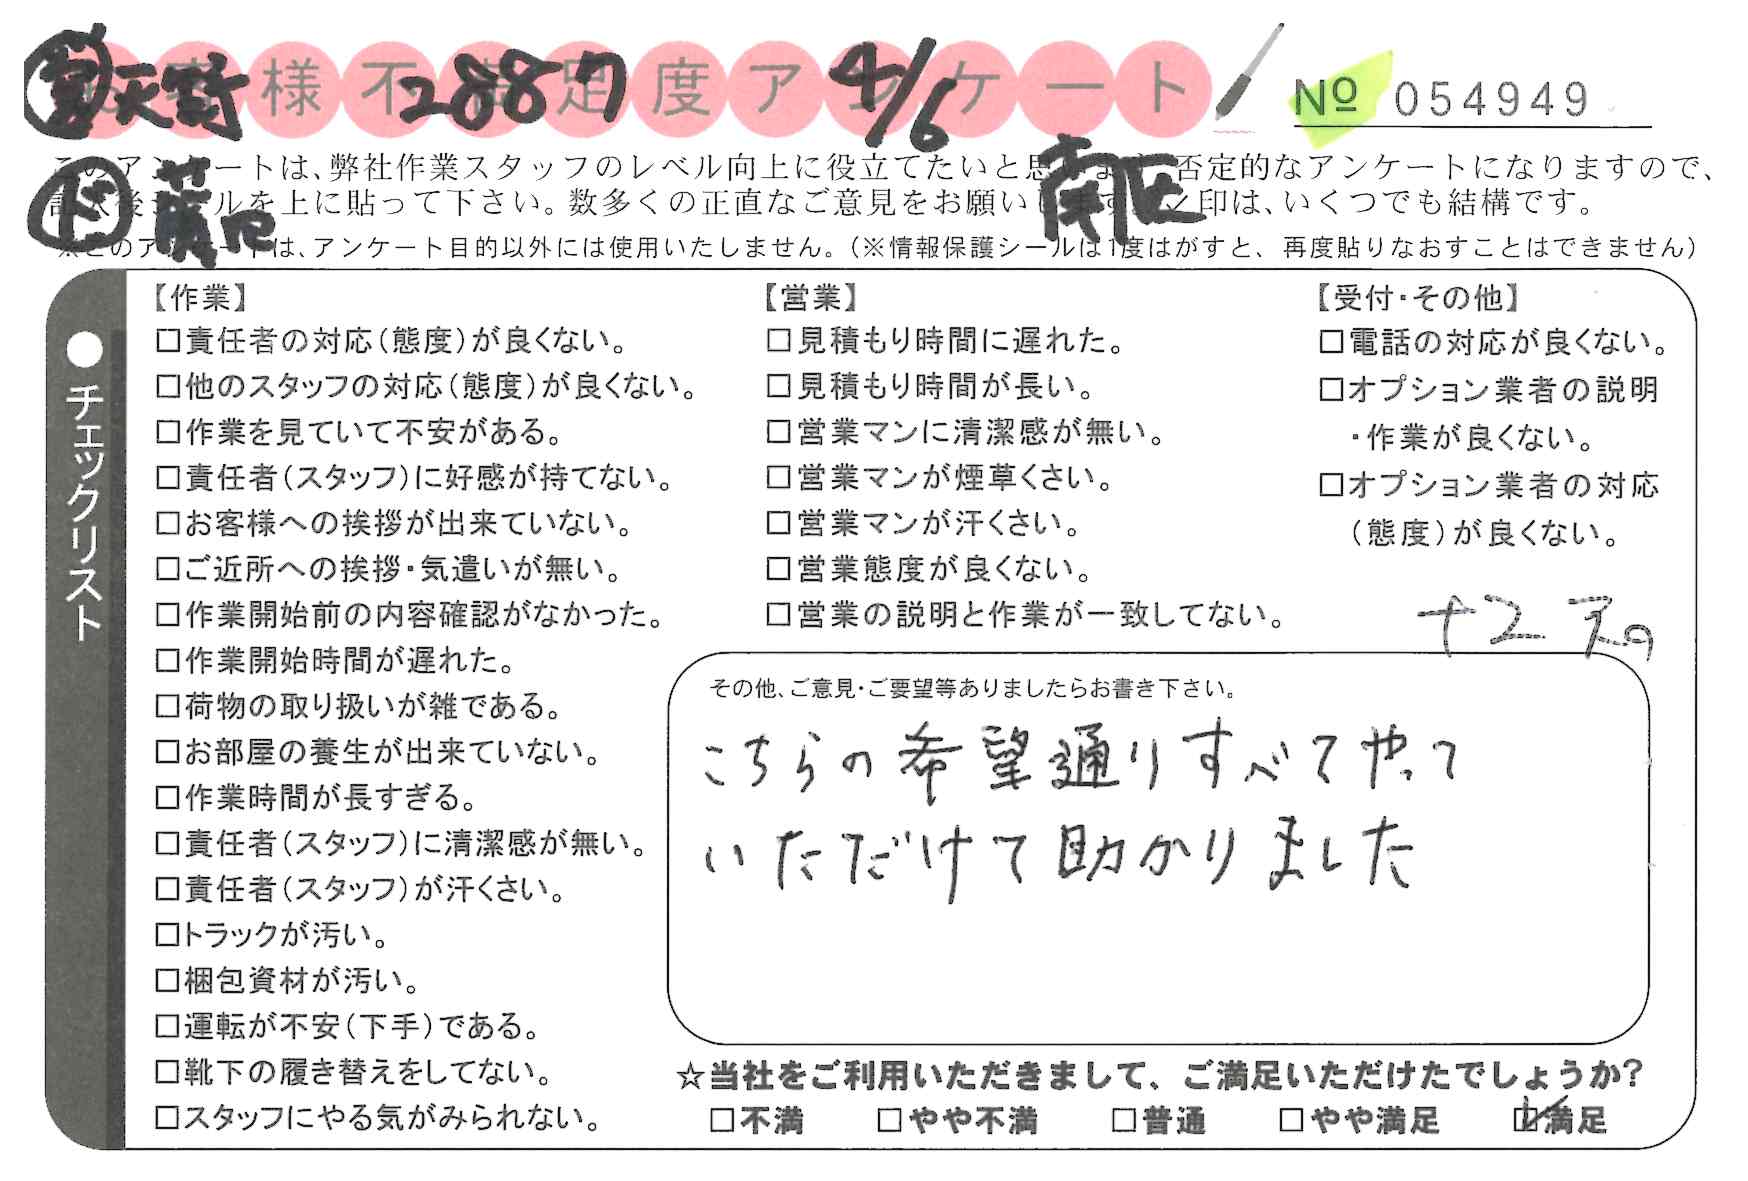 営 天野 2887 4/6
お客様不満足度アンケート № 054949
このアンケートは、弊社作業スタッフのレベル向上に役立てたいと思います。否定的なアンケートになりますので、
ド 南区
記入後シールを上に貼って下さい。数多くの正直なご意見をお願いします。レ印は、いくつでも結構です。
※このアンケートは、アンケート目的以外には使用いたしません。(※情報保護シールは1度はがすと、再度貼りなおすことはできません)
●チェックリスト
【作業】
□責任者の対応(態度)が良くない。
□他のスタッフの対応(態度)が良くない。
□作業を見ていて不安がある。
□責任者(スタッフ)に好感が持てない。
□お客様への挨拶が出来ていない。
□ご近所への挨拶・気遣いが無い。
□作業開始前の内容確認がなかった。
□作業開始時間が遅れた。
□荷物の取り扱いが雑である。
□お部屋の養生が出来ていない。
□作業時間が長すぎる。
□責任者(スタッフ)に清潔感が無い。
□責任者(スタッフ)が汗くさい。
□トラックが汚い。
□梱包資材が汚い。
□運転が不安(下手)である。
□靴下の履き替えをしてない。
□スタッフにやる気がみられない。
【営業】
□見積もり時間に遅れた。
□見積もり時間が長い。
□営業マンに清潔感が無い。
□営業マンが煙草くさい。
□営業マンが汗くさい。
□営業態度が良くない。
□営業の説明と作業が一致してない。
【受付・その他】
□電話の対応が良くない。
□オプション業者の説明
・作業が良くない。
□オプション業者の対応
(態度)が良くない。
その他、ご意見・ご要望等ありましたらお書き下さい。
こちらの希望通りすべてやって
いただけて助かりました
☆当社をご利用いただきまして、ご満足いただけたでしょうか?
□不満 □やや不満 □普通 □やや満足 ☑満足